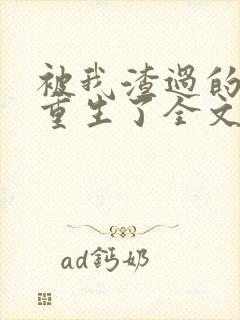 被我渣过的
重生了全文
ad鈣奶